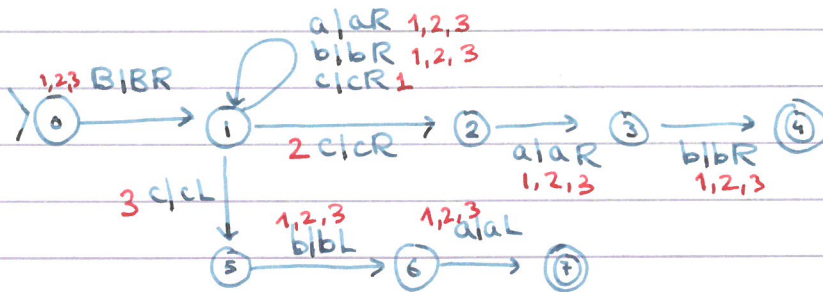 a|aR 1,2,3
b|bR 1,2,3
c|cR 1
1,2,3 B|BR
0
1
2 c|cR
2
a|aR
1,2,3
3
b|bR
1,2,3
4
3 c|cL
5
1,2,3
b|bL
6
1,2,3
a|aL
7